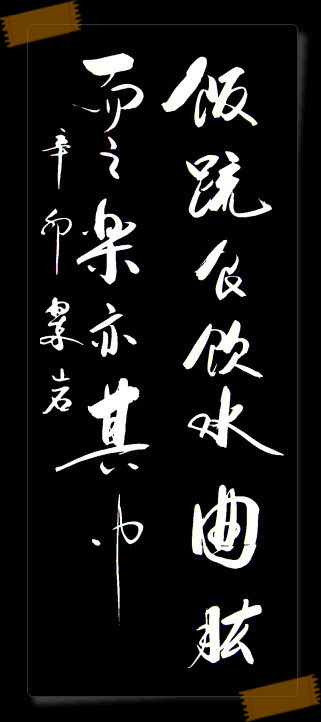 飯疏食飲水曲肱
而之楽亦其中
辛卯 岩